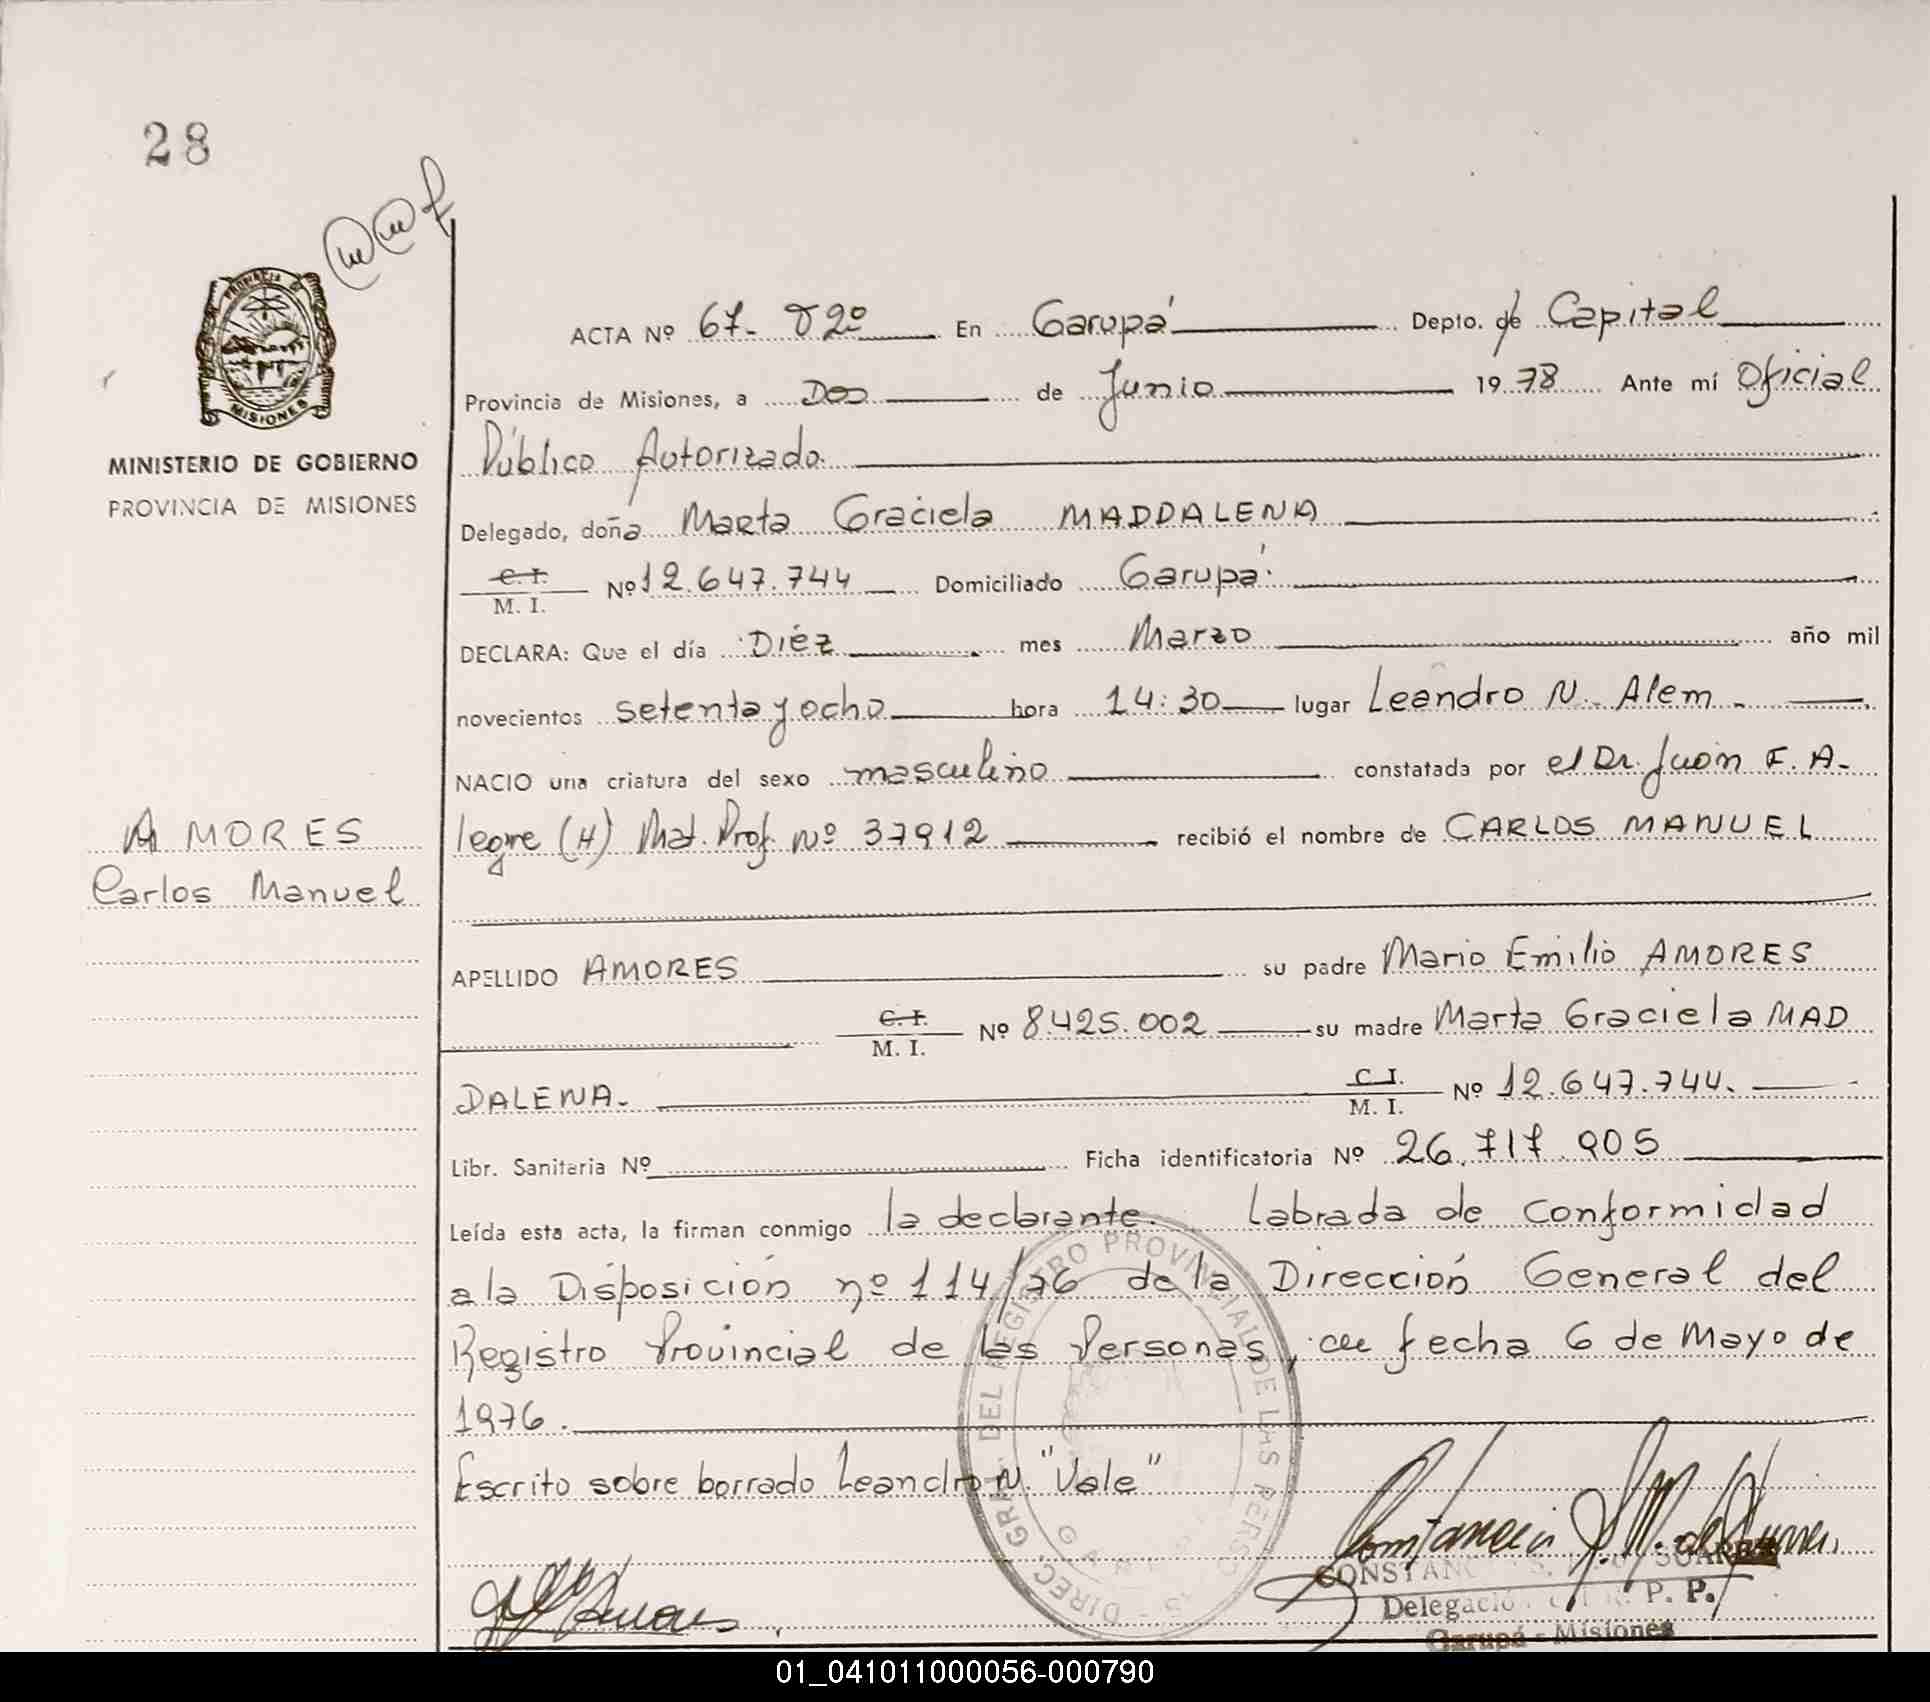 28
PROVINCIA DE
MISIONES
MINISTERIO DE GOBIERNO
PROVINCIA DE MISIONES
ACTA Nº 67- Tº 2º En Garupá Depto. de Capital
Provincia de Misiones, a Dos de Junio 1978 Ante mí Oficial
Público Autorizado.
Delegado, doña Marta Graciela MADDALENA
C. I.
M. I. Nº 12.647.744 Domiciliado Garupá.
DECLARA: Que el día Diéz mes Marzo año mil
novecientos setenta y ocho hora 14:30 lugar Leandro N. Alem -
NACIO una criatura del sexo masculino constatada por el Dr. Juan F. A-
AMORES
legre (H) Mat. Prof. Nº 37912 recibió el nombre de CARLOS MANUEL
Carlos Manuel
APELLIDO AMORES su padre Mario Emilio AMORES
C. I.
M. I. Nº 8.425.002 su madre Marta Graciela MAD
DALENA.- C. I.
M. I. Nº 12.647.744.
Libr. Sanitaria Nº Ficha identificatoria Nº 26.717.905
Leída esta acta, la firman conmigo la declarante. Labrada de conformidad
a la Disposición nº 114/76 de la Dirección General del
Registro Provincial de las Personas, de fecha 6 de Mayo de
1976.
Escrito sobre borrado Leandro N. "Vale"
DIREC. GRAL. DEL REGISTRO PROVINCIAL DE LAS PERSO
Delegación P. P.
Garupá - Misiones
01_041011000056-000790